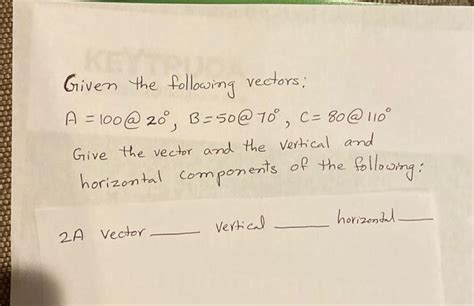 Given the following vectors:
A = 100@ 20°, B=50@ 70°, C= 80@ 110°
Give the vector and the vertical and
horizontal components of the following:
2A vector ____ vertical ____ horizontal ____